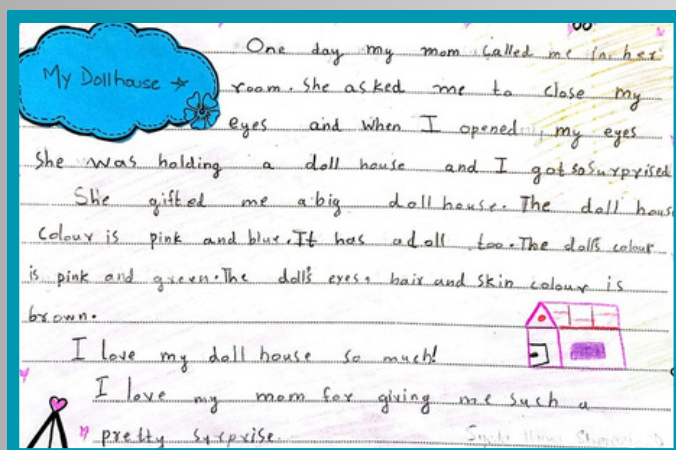 My Dollhouse
One day my mom called me in her
room. She asked me to close my
eyes and when I opened, my eyes
She was holding a doll house and I got so Surprised
She gifted me a big doll house. The doll house
colour is pink and blue. It has a doll too. The doll's colour
is pink and green. The doll's eyes, hair and skin colour is
brown.
I love my doll house so much!
I love my mom for giving me such a
pretty surprise.